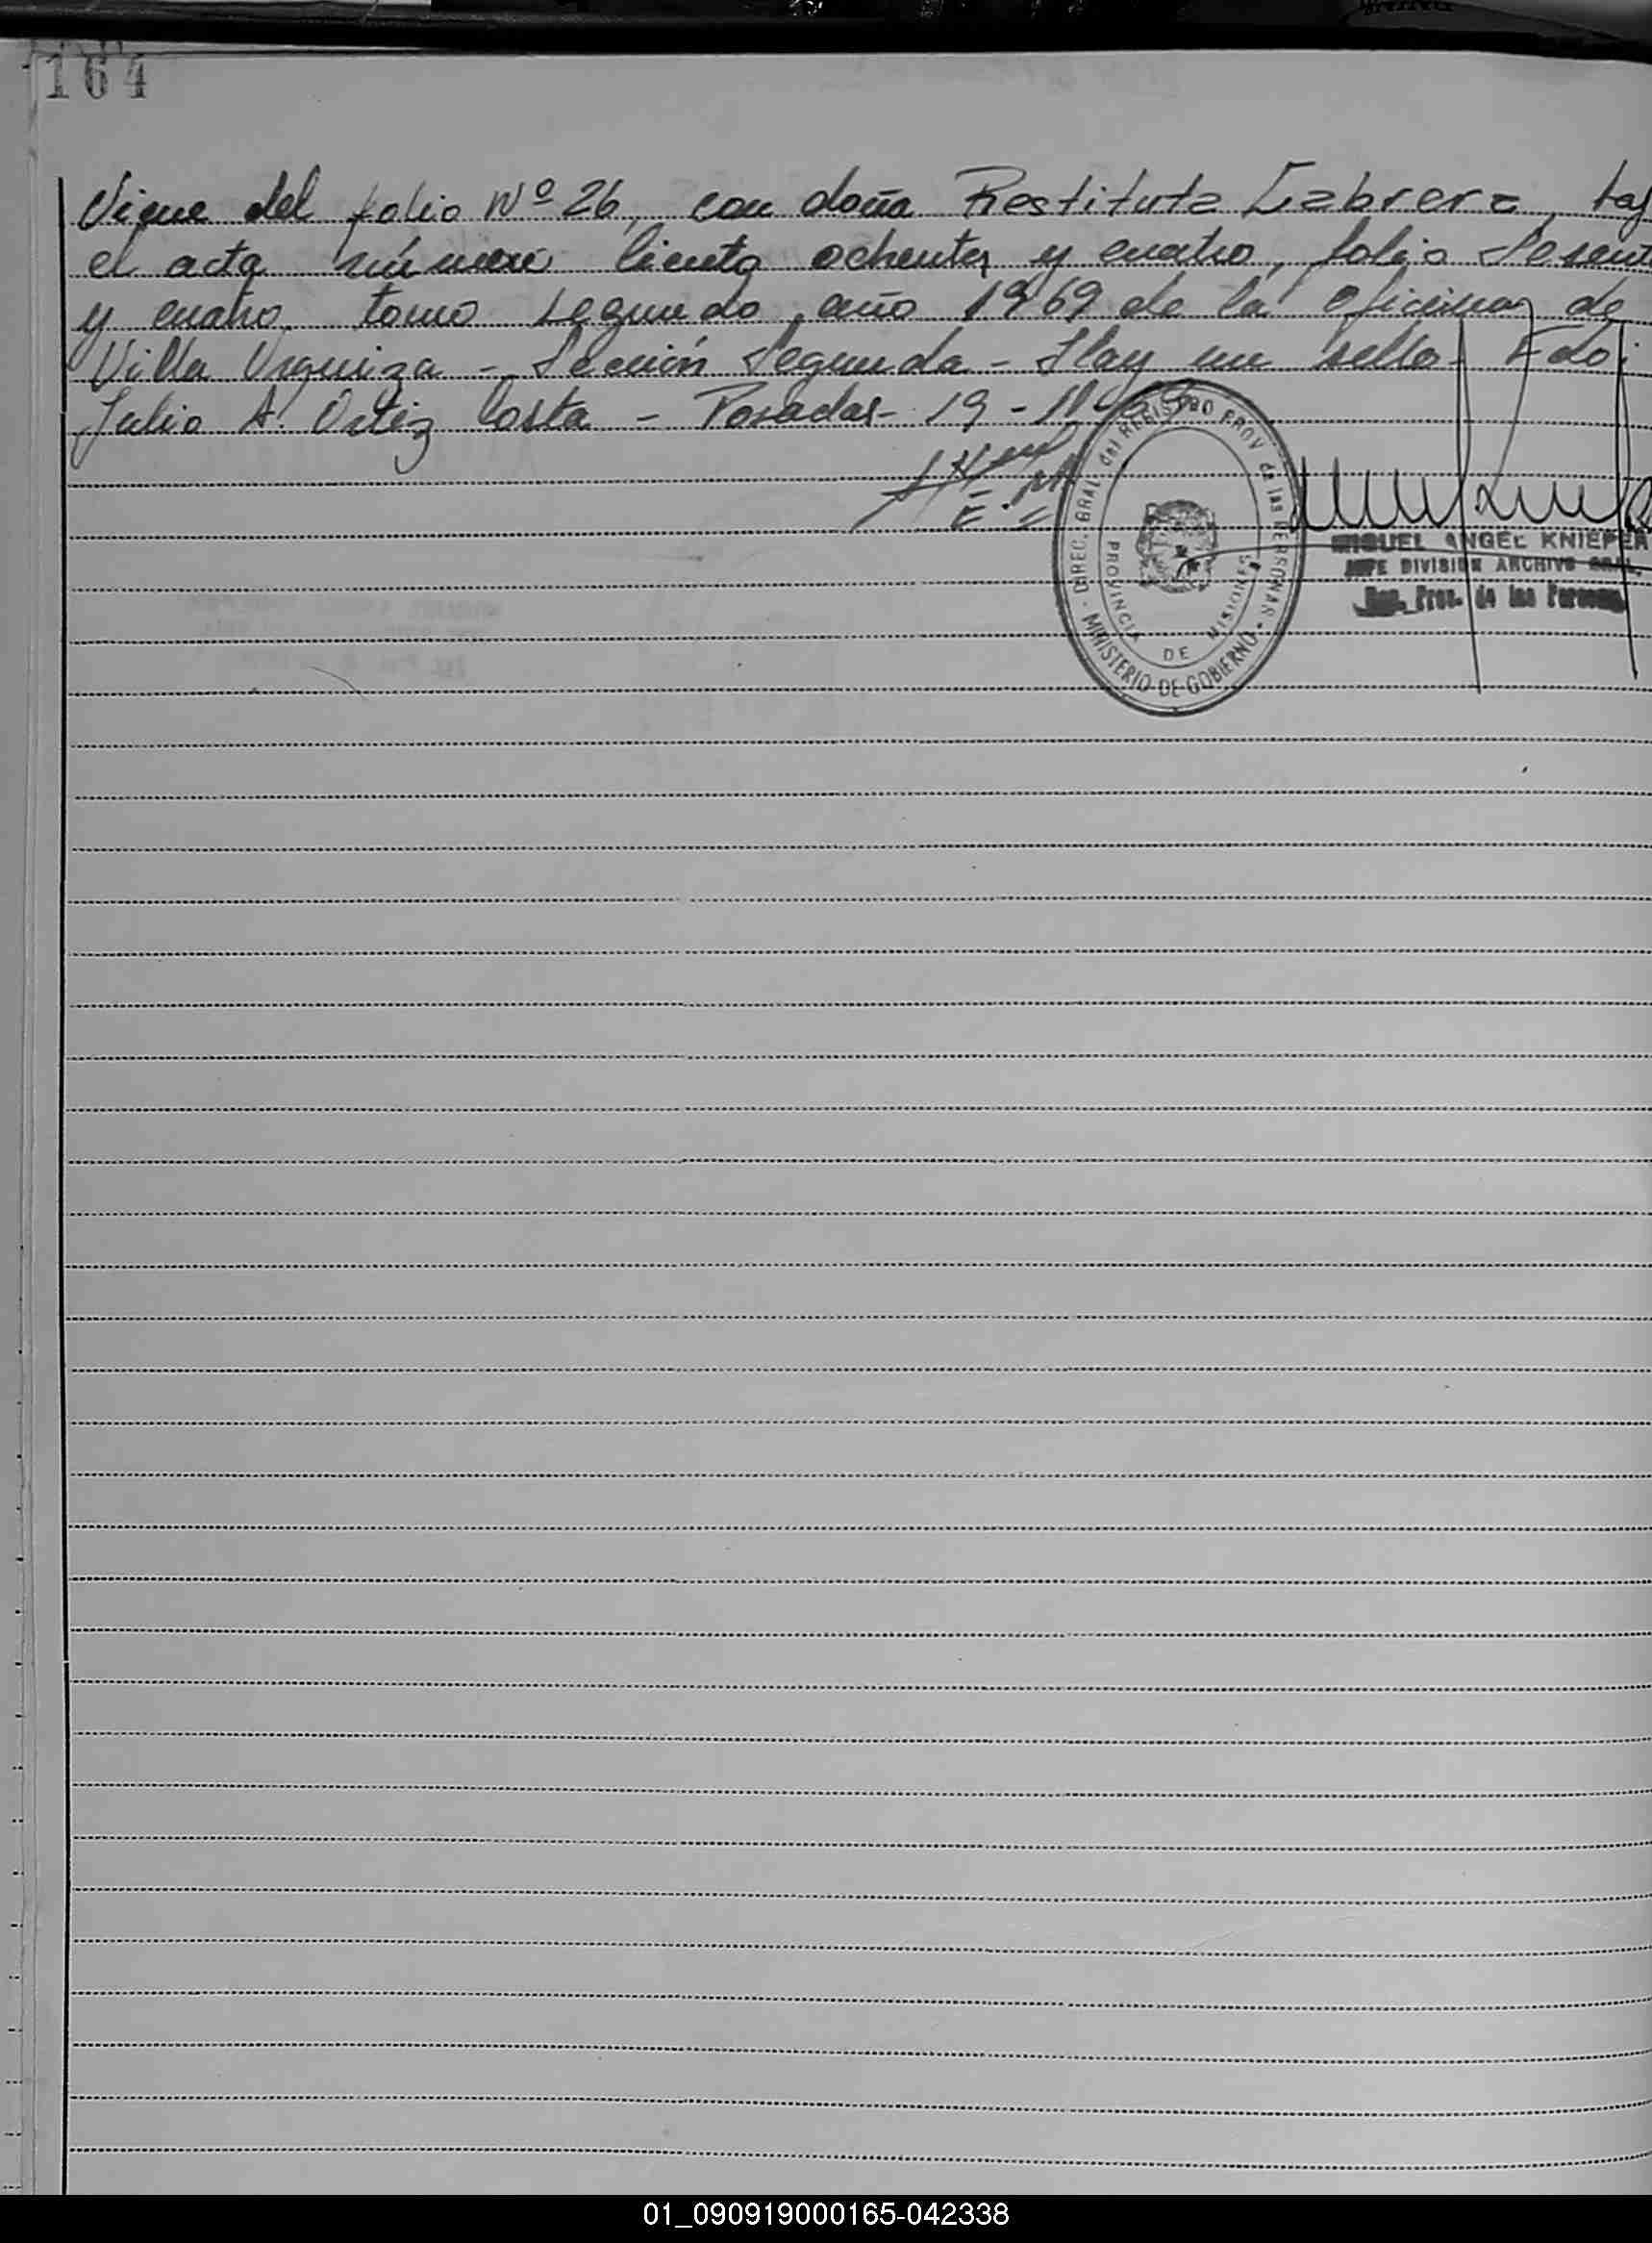 164
Viene del folio Nº 26, con doña Restituta Cabrera,
el acta número Ciento ochenta y cuatro, folio Sesent
y cuatro, tomo segundo, año 1969 de la Oficina de
Villa Urquiza - Sección Segunda - Hay un sello - Fdo:
Julio A. Ortiz Costa - Posadas - 19 - 11
DIREC. GRAL. del REGISTRO PROV de las PERSONAS
MINISTERIO DE GOBIERNO
PROVINCIA DE MISIONES
MIGUEL ANGEL KNIEPER
JEFE DIVISION ARCHIVO GRAL.
Reg. Prov. de las Personas
01_090919000165-042338